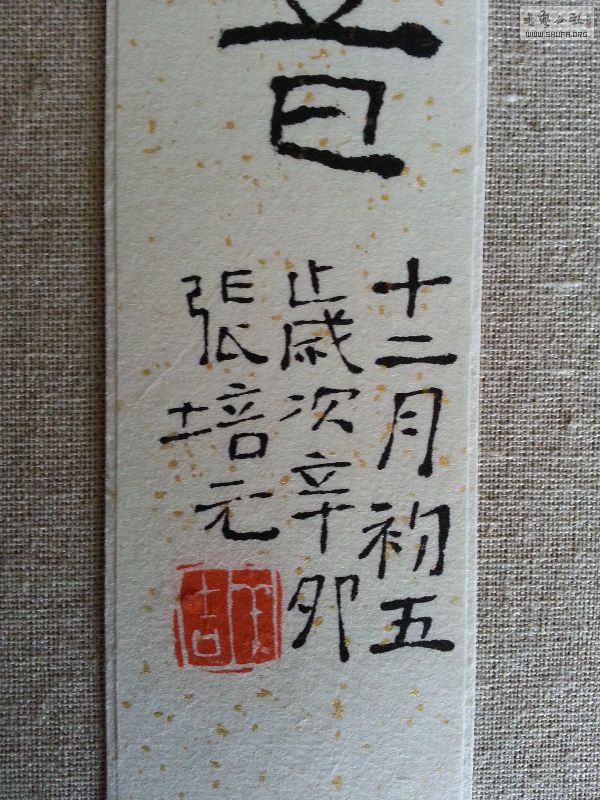 音
十二月初五
歲次辛卯
張培元
WWW.SHUFA.ORG